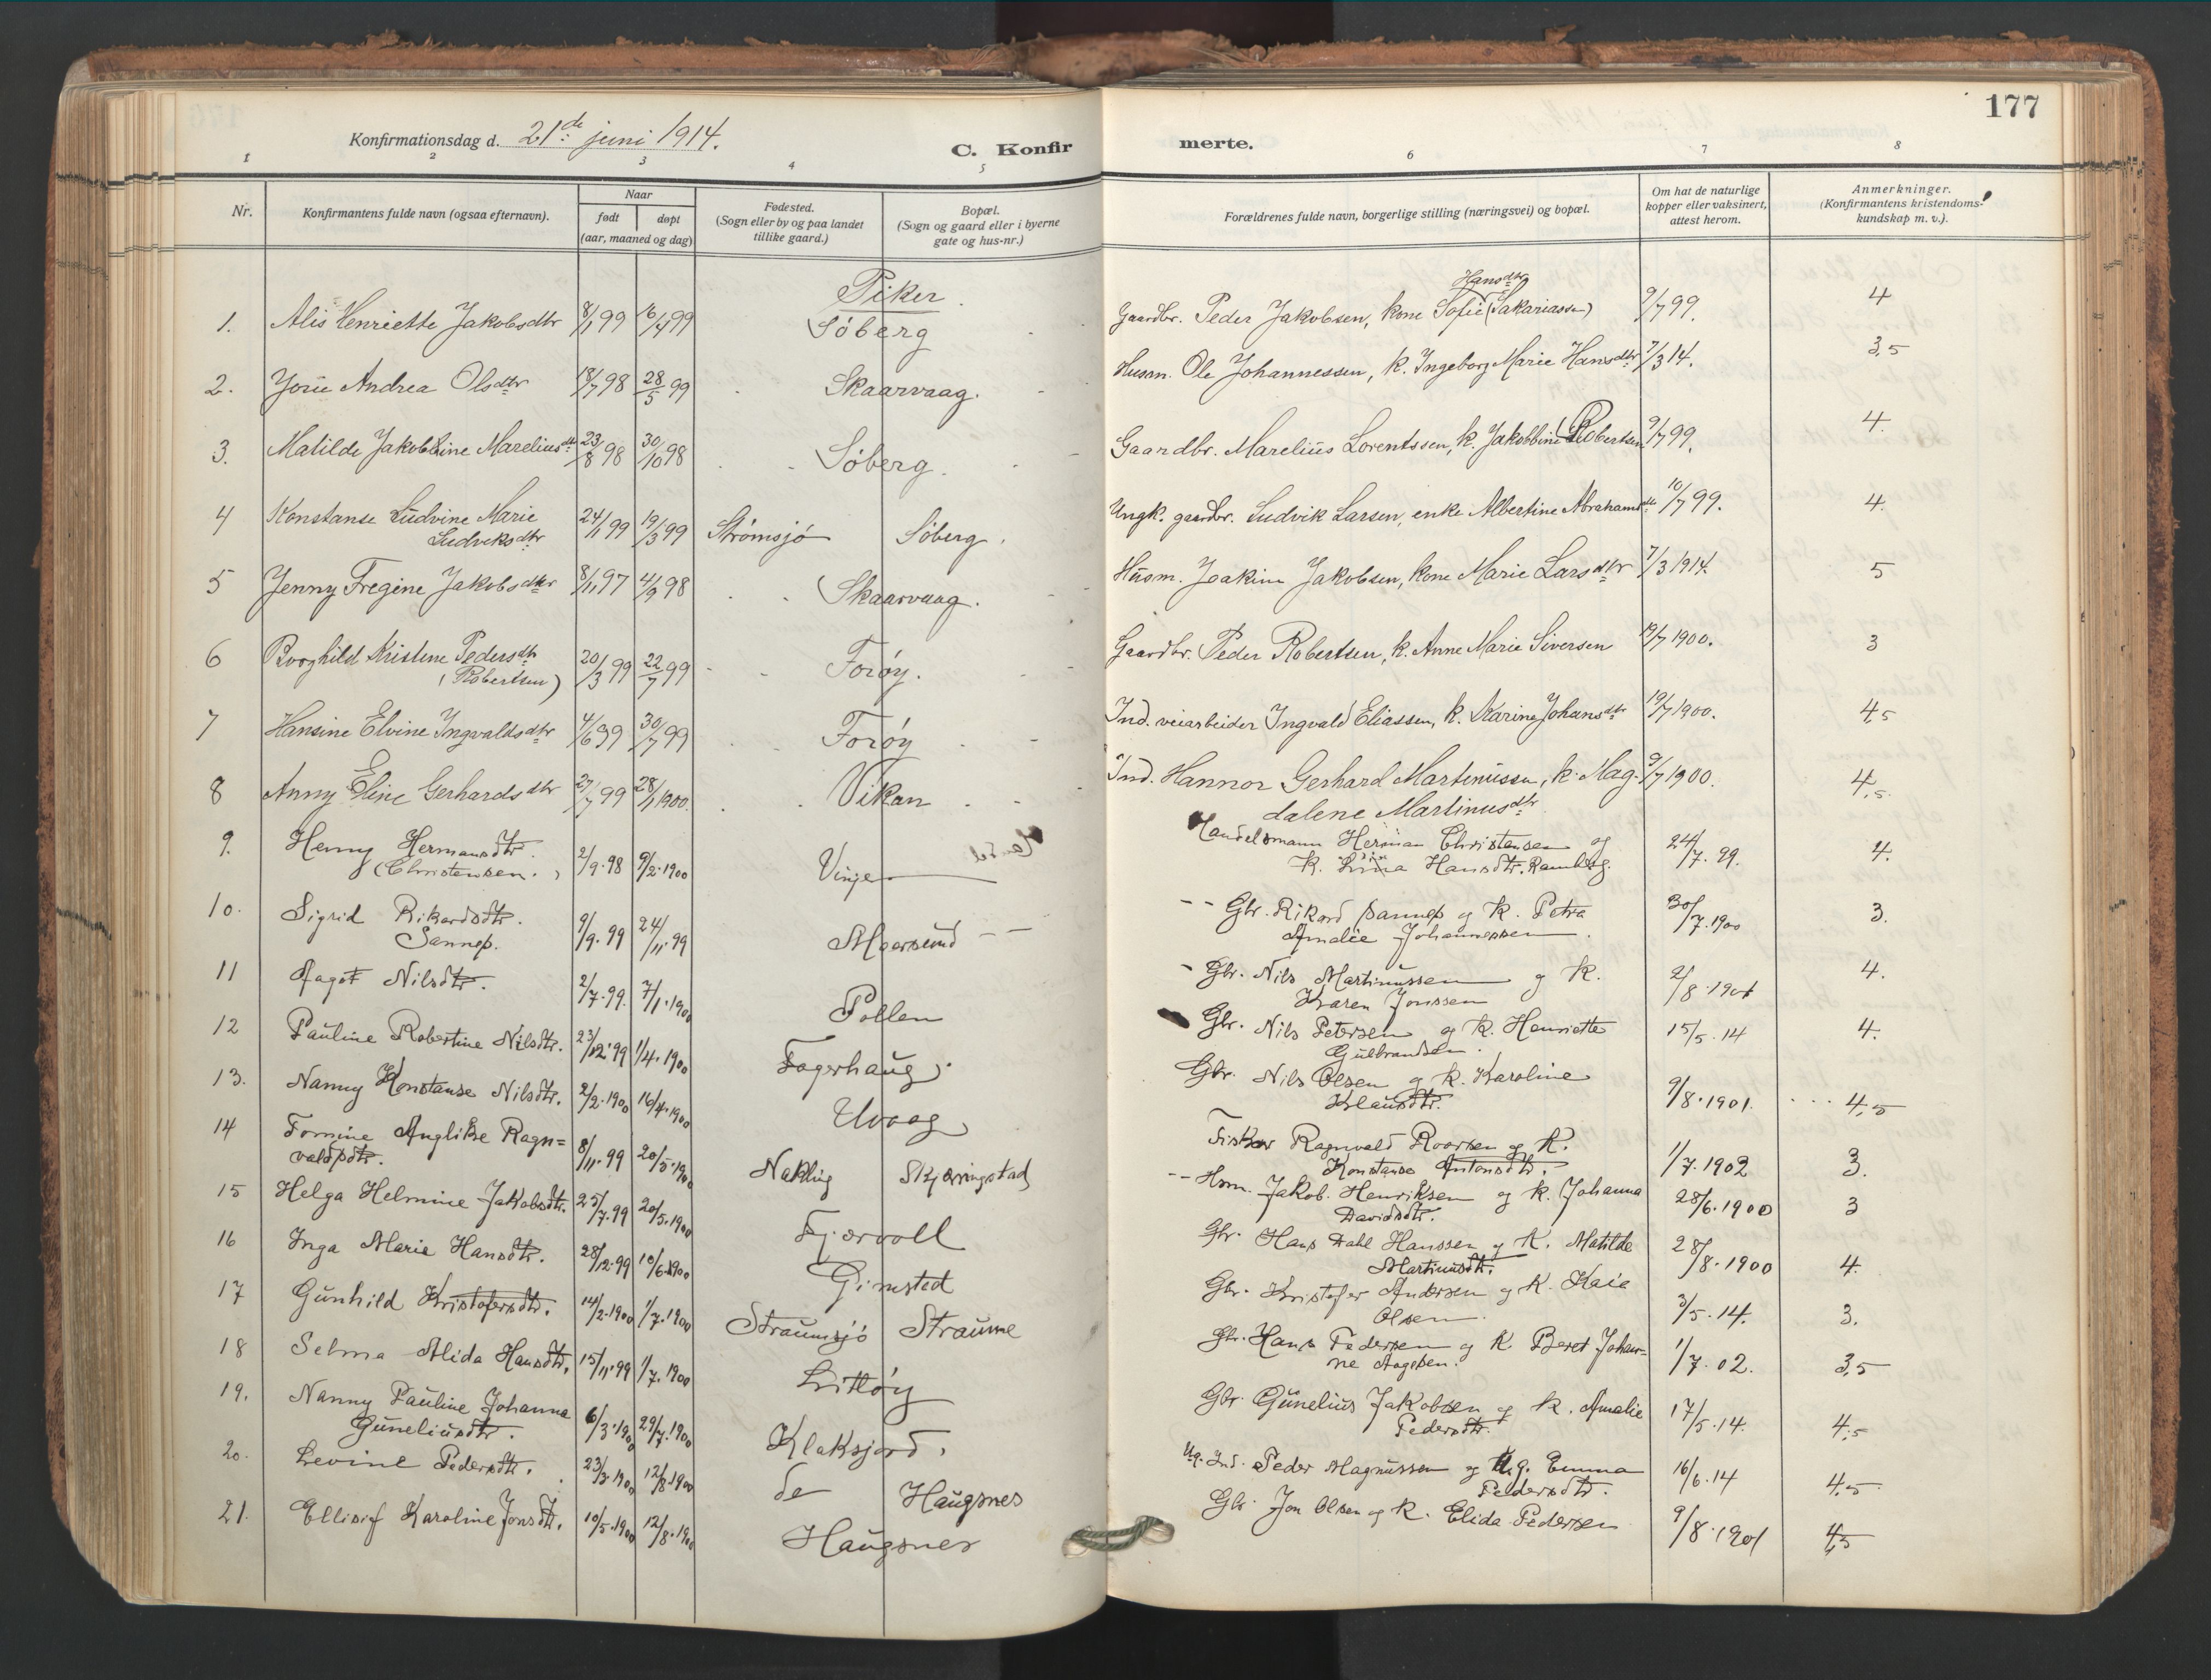 177
Konfirmationsdag d. 21de juni 1914.
C. Konfir merte.
1 2 3 4 5 6 7 8
Nr. Konfirmantens fulde navn (ogsaa efternavn). Naar født døpt (aar, maaned og dag) Fødested. (Sogn eller by og paa landet tillike gaard.) Bopæl. (Sogn og gaard eller i byerne gate og hus-nr.) Forældrenes fulde navn, borgerlige stilling (næringsvei) og bopæl. Om hat de naturlige kopper eller vaksinert, attest herom. Anmerkninger. (Konfirmantens kristendoms-kundskap m. v.).
Piker.
Hansdtr
1. Alis Henriette Jakobsdtr 8/1 99 16/4 99 Søberg Gaardbr. Peder Jakobsen, kone Sofie (Sakariassen) 9/7 99. 4
2. Andrea Olsdtr 18/7 98 28/5 99 Skaarvaag. Husm. Ole Johannessen, k. Ingeborg Marie Hansdtr 7/3 14. 3,5
3. Matilde Jakobbine Mareliusdtr 23/8 98 30/10 98 Søberg. Gaardbr. Marelius Lorentssen, k. Jakobbine Robertsen 9/7 99. 4.
4 Konstanse Ludvine Marie 24/1 99 19/3 99 Strømsjø Søberg. Ungk. gaardbr. Ludvik Larsen, enke Albertine Abrahamsdtr 10/7 99. 4.
Ludviksdtr
5 Jenny Fregine Jakobsdtr 8/11 97 4/9 98 Skaarvaag. Husm. Joakim Jakobsen, kone Marie Larsdtr 7/3 1914. 5
6 Borghild Kristine Pedersdtr 20/3 99 22/7 99 Forøy. Gaardbr. Peder Robertsen, k. Anne Marie Siversen 19/7 1900. 3
(Robertsen)
7 Hansine Elvine Ingvaldsdtr 4/6 99 30/7 99 Forøy Ind. veiarbeider Ingvald Eliassen, k. Karine Johansdtr 19/7 1900. 4,5
8 Anny Eline Gerhardsdtr 27/7 99 28/1 1900. Vikan Ind. Hannor Gerhard Martinussen, k. Mag- 9/7 1900. 4,5
dalene Martinusdtr
9. Henny Hermansdtr. 2/9.98 9/2.1900 Vinje Handelsmann Herman Christensen og 24/7.99. 4.
(Christensen.) K. Hansdtr. Ramberg.
10. Sigrid Rikardsdtr. 9/9.99 24/11.99 Maarsund Gbr. Rikard Sannes og K. Petra 30/7.1900 3.
Sannes. Amalie Johannessen.
11 Aagot Nilsdtr. 2/7.99. 7/1.1900 Pollen Gbr. Nils Martinussen og K. 2/8.1901 4.
Karen Jonssen
12 Pauline Robertine Nilsdtr. 23/12.99 1/4.1900 Fagerhaug. Gbr. Nils Petersen og K. Henriette 15/5.14 4.
Gulbrandsen.
13. Nanny Konstanse Nilsdtr. 2/2.1900 16/4.1900 Uvaag Gbr. Nils Olsen og K. Karoline 9/8.1901. 4,5
Klausdtr.
14 Tomine Anglike Ragn= 8/11.99 20/5.1900 Nakling Skjærringstad Fisker Ragnvald Roarsen og K. 1/7.1902 3.
valdsdtr. Konstanse Antonsdtr.
15 Helga Helmine Jakobsdtr. 25/7.99 20/5.1900 Fjærvoll Hsm. Jakob Henriksen og K. Johanna 28/6.1900 3
Davidsdtr.
16 Inga Marie Hansdtr. 28/12.99 10/6.1900 Gimsted Gbr. Hans Dahl Hanssen og K. Matilde 28/8.1900 4.
Martinusdtr.
17 Gunhild Kristofersdtr. 14/2.1900 1/7.1900 Straumsjø Straume Gbr. Kristofer Andersen og K. Kaia 3/5.14. 3.
Olsen.
18 Selma Alida Hansdtr. 15/11.99 1/7.1900 Litløy Gbr. Hans Pedersen og K. Beret Johan= 1/7.02. 3,5
ne Aagesen.
19. Nanny Pauline Johanna 6/3.1900 29/7.1900 Klaksjord. Gbr. Gunelius Jakobsen og K. Amalie 17/5.14. 4,5
Guneliusdtr. Pedersdtr.
20. Levine Pedersdtr. 23/3.1900 12/8.1900 do Haugsnes Ug. Ind. Peder Magnussen og Ug. Emma 16/6.14 4,5
Pedersdtr.
21. Ellisif Karoline Jonsdtr. 10/5.1900 12/8.1900 Haugsnes Gbr. Jon Olsen og K. Elida Pedersen 9/8.1901 4,5